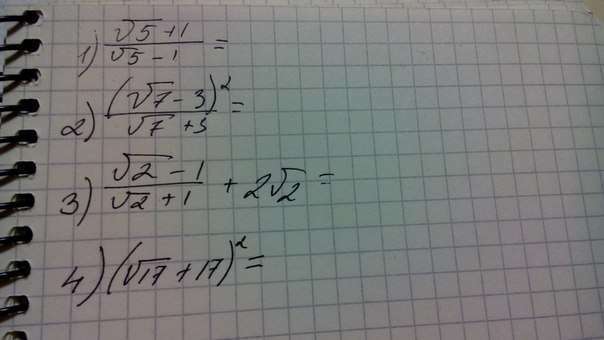 1) (√5 + 1)/(√5 − 1) =
2) (√7 − 3)²/(√7 + 3) =
3) (√2 − 1)/(√2 + 1) + 2√2 =
4) (√17 + 17)² =